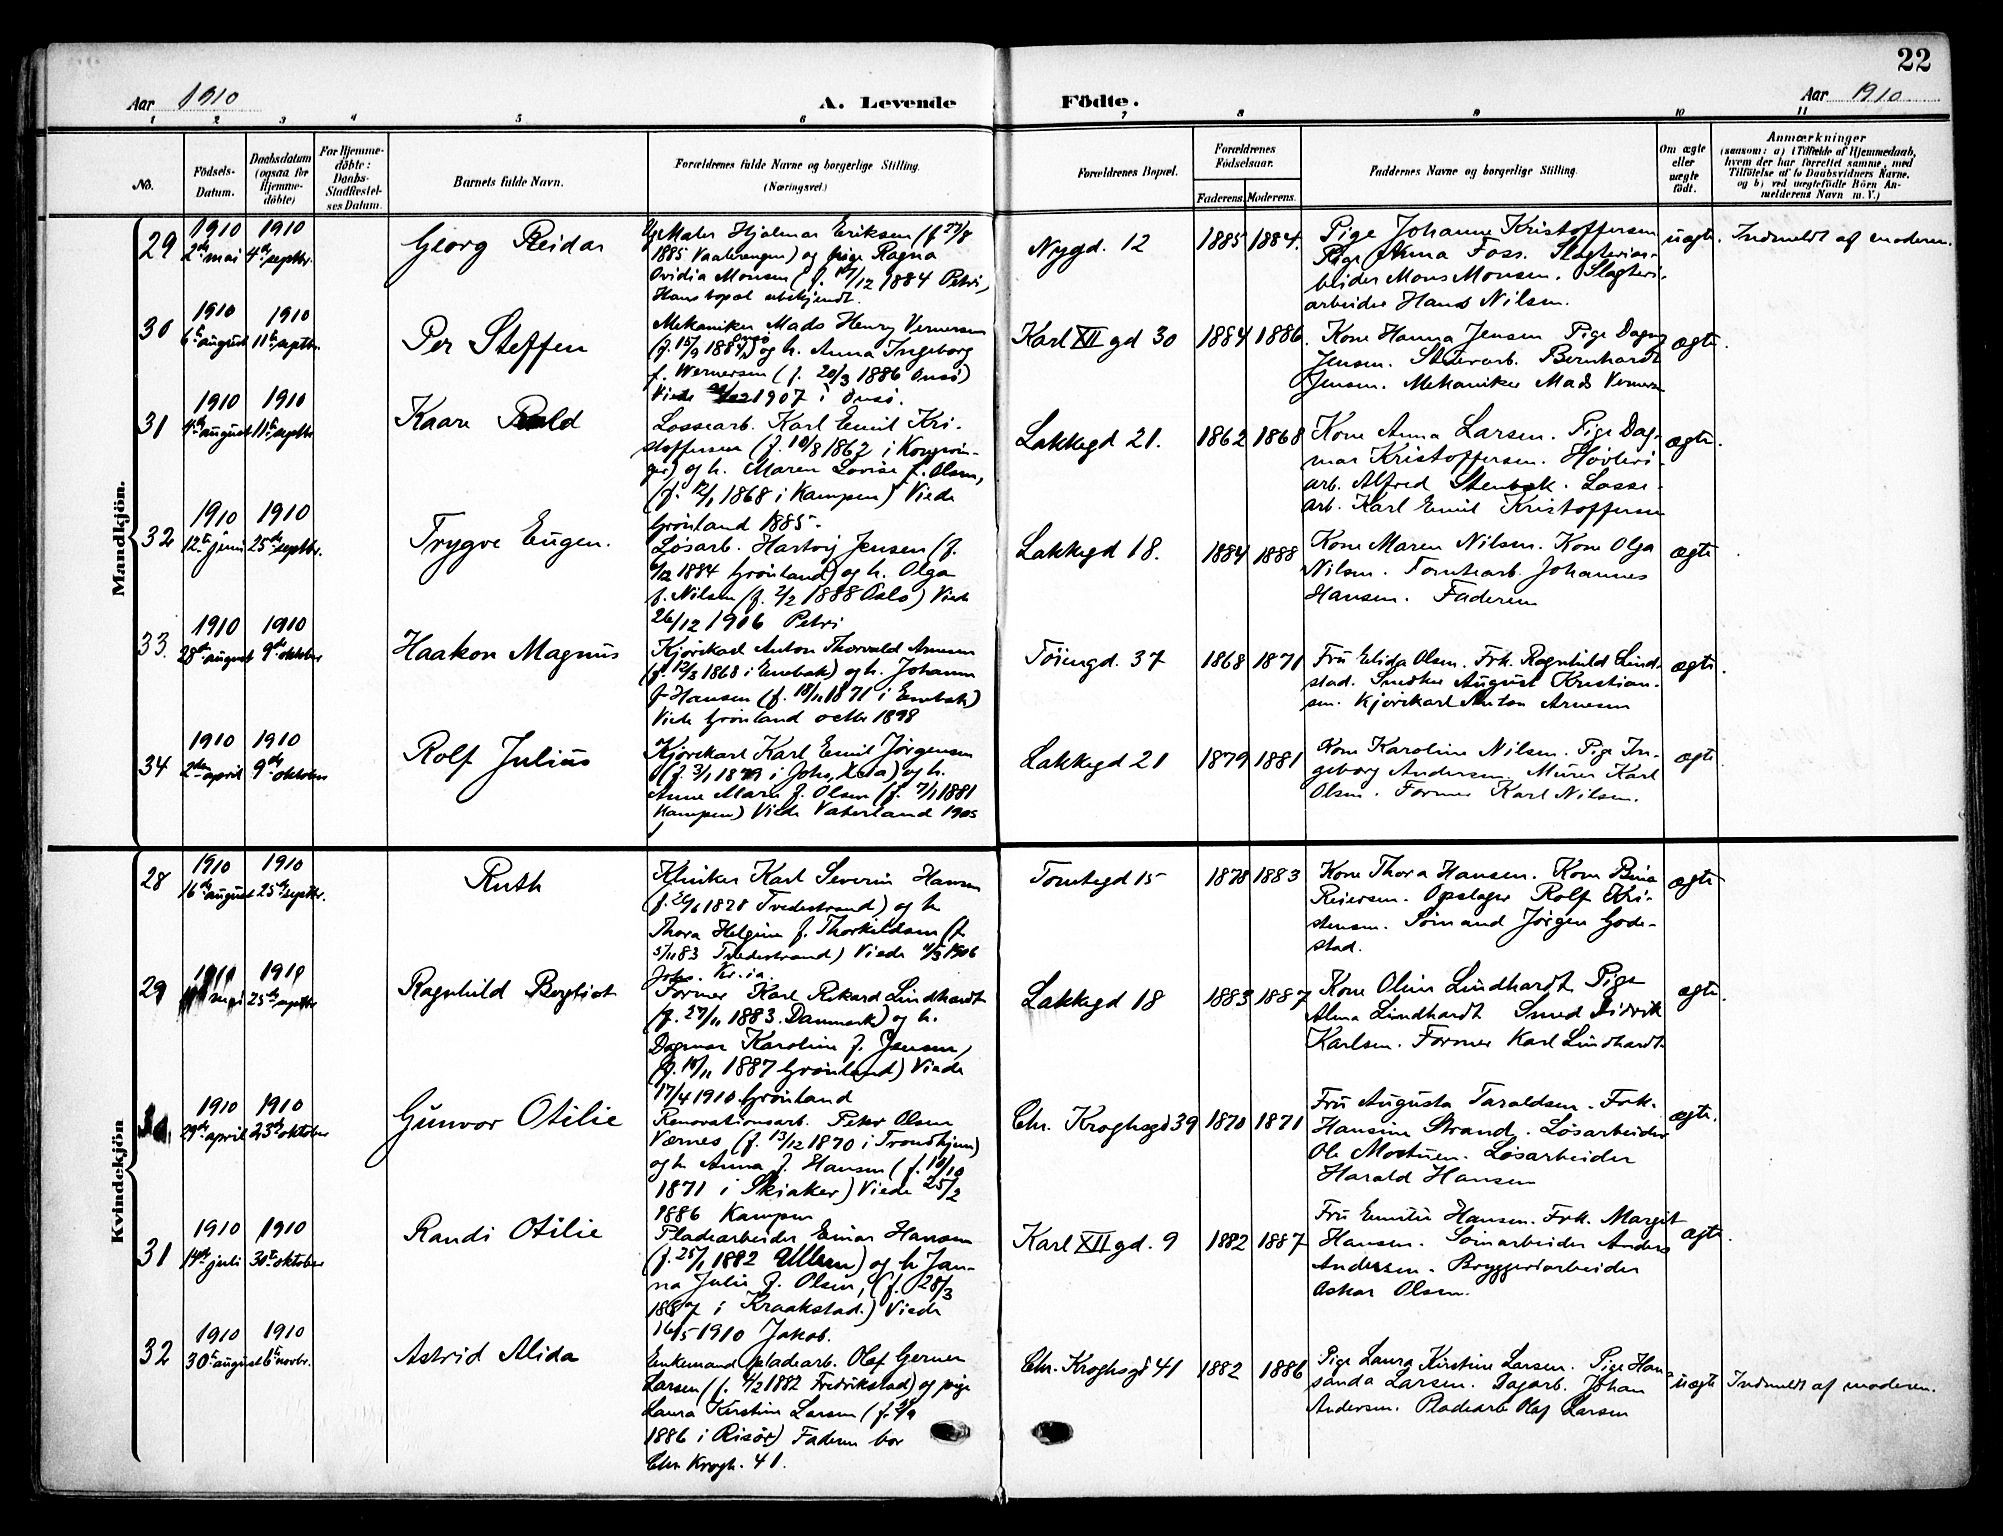 22
Aar 1910
A. Levende Födte.
Aar 1910
1 2 3 4 5 6 7 8 9 10 11
No.
Födsels-Datum.
Daabsdatum (ogsaa for Hjemme-döbte)
For Hjemme-döbte: Daabs-Stadfæstel-ses Datum.
Barnets fulde Navn.
Forældrenes fulde Navne og borgerlige Stilling.
(Næringsvei.)
Forældrenes Bopæl.
Forældrenes Födselsaar.
Faderens. Moderens.
Faddernes Navne og borgerlige Stilling.
Om ægte eller uægte födt.
Anmærkninger
(saasom: a) i Tilfælde af Hjemmedaab, hvem der har forrettet samme, med Tilföielse af to Daabsvidners Navne, og b) ved uægtefödte Börn An-melderens Navn m. V.)
Mandkjön.
29
1910 2de mai
1910 4de septbr.
Georg Reidar
Maler Hjalmar Eriksen (f. 27/8
1885 Vaalerengen) og pige Ragna
Ovidia Monsen (f. 17/12 1884 Petri,
Hans bopæl ubekjendt.
Nygd. 12
1885 1884.
Pige Johanne Kristoffersen
Pige Anna Foss. Slagteriar-
beider Mons Monsen. Slagteri-
arbeider Hans Nilsen.
uægte.
Indmeldt af moderen.
30
1910 6te august
1910 11te septbr.
Per Steffen
Mekaniker Mads Henry Vernersen
(f. 15/9 1884 Onsö) og h. Anna Ingeborg
f. Wernersen (f. 20/3 1886 Onsö)
Viede 1907 i Onsö.
Karl XII gd 30
1884 1886.
Kone Hanna Jensen Pige Dagny
Jensen. Stenarb. Bernhardt
Jensen. Mekaniker Mads Vernersen
ægte.
31
1910 4de august
1910 11te septbr
Kaare
Lossearb. Karl Emil Kri-
stoffersen (f. 10/8 1862 i Kongsvin-
ger) og h. Maren Lovise f. Olsen,
(f. 12/1 1868 i Kampen) Viede
Grönland 1885.
Lakkegd 21.
1862 1868
Kone Anna Larsen. Pige Dag-
mar Kristoffersen. Hövleri-
arb. Alfred Stenbek. Losse-
arb. Karl Emil Kristoffersen
ægte.
32
1910 12te juni
1910 25de septbr.
Trygve Eugen.
Løsarb. Hartvig Jensen (f.
6/12 1884 Grönland) og h. Olga
f. Nilsen (f. 2/2 1888 Oslo) Viede
26/12 1906 Petri
Lakkegd 18.
1884 1888
Kone Maren Nilsen. Kone Olga
Nilsen. Tomtearb Johannes
Hansen. Faderen
ægte
33.
1910 28de august
1910 9de oktober
Haakon Magnus
Kjörekarl Anton Thorvald Arnesen
(f. 12/3 1868 i Enebak) og h. Johanne
f. Hansen (f. 18/11 1871 i Enebak)
Viede Grönland octbr 1898
Töiengd. 37
1868 1871
Fru Elida Olsen. Frk. Ragnhild Lind-
stad. Snedker August Kristian-
sen. Kjörekarl Anton Arnesen
ægte.
34
1910 2den april
1910 9de oktober
Rolf Julius
Kjörekarl Karl Emil Jörgensen
(f. 3/1 1879 i Johs, Kr.ia) og h.
Anne Marie f. Olsen (f. 7/1 1881
Kampen) Viede Vaterland 1905
Lakkegd 21
1879 1881
Kone Karoline Nilsen. Pige In-
geborg Andersen. Murer Karl
Olsen. Former Karl Nilsen.
ægte
Kvindekjön
28
1910 16de august
1910 25de septbr.
Ruth
Klinker Karl Severin Hansen
(f. 26/6 1878 Tvedestrand) og h
Thora Helgine f. Thorkildsen (f.
5/11 83 Tvedestrand) Viede 4/3 1906
Johs. Kr.ia.
Tomtegd 15
1878 1883
Kone Thora Hansen. Kone Bina
Reiersen. Opslager Rolf Kri-
stensen. Sömand Jörgen Gode-
stad.
ægte
29
1910 mai
1910 25de septbr
Ragnhild Bergliot
Former Karl Rikard Lindhardt
(f. 27/11 1883. Danmark) og h.
Dagmar Karoline f. Jensen,
(f. 10/11 1887 Grönland) Viede
17/4 1910 Grönland
Lakkegd 18
1883 1887
Kone Oline Lindhardt Pige
Alma Lindhardt Smed Didrik
Karlsen. Former Karl Lindhardt
ægte.
30
1910 29de april
1910 23de oktober
Gunvor Otilie
Renovationsarb. Peter Olsen
Værnes (f. 13/12 1870 i Trondhjem)
og h. Anna f. Hansen (f. 10/10
1871 i Skiaker) Viede 25/2
1886 Kampen
Chr. Kroghsgd 39
1870 1871
Fru Augusta Taraldsen. Frk.
Hansine Strand. Løsarbeider
Ole Mostuen. Løsarbeider
Harald Hansen
ægte.
31
1910 14de juli
1910 30te oktober
Randi Otilie
Pladearbeider Einar Hansen
(f. 25/1 1882 Ullern) og h Jan-
na Julie f. Olsen, (f. 28/3
1887 i Kraakstad.) Viede
16/5 1910 Jakob.
Karl XII gd. 9
1882 1887
Fru Emilie Hansen. Frk. Margit
Hansen. Anders
Andersen. Bryggeriarbeider
Oskar Olsen.
ægte.
32
1910 30te august
1910 6te novbr.
Astrid Alida
Enkemand pladearb. Olaf Gerner
Larsen (f. 4/2 1882 Fredrikstad) og pige
Laura Kirstine Larsen (f.
1886 i Risör) Faderen bor
Chr. Krogh. 41.
Chr. Kroghsgd 41
1882 1886
Pige Laura Kirstine Larsen. Pige Han-
sanda Larsen. Dagarb. Johan
Andersen. Pladearb Olaf Larsen
uægte
Indmeldt af moderen.